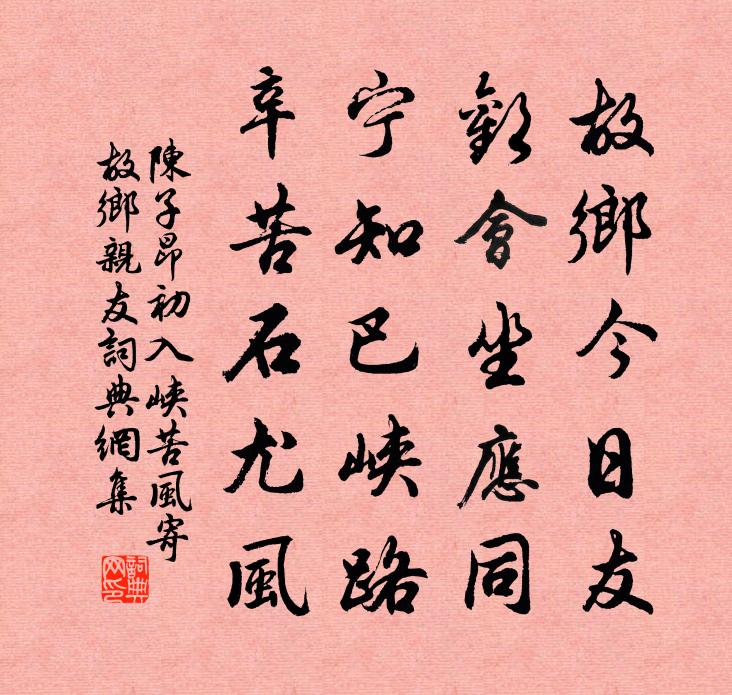 故鄉今日友
歡會坐應同
宁知巴峽路
辛苦石尤風
陳子昂初入峽苦風寄
故鄉親友詞典網集
詞典
网印